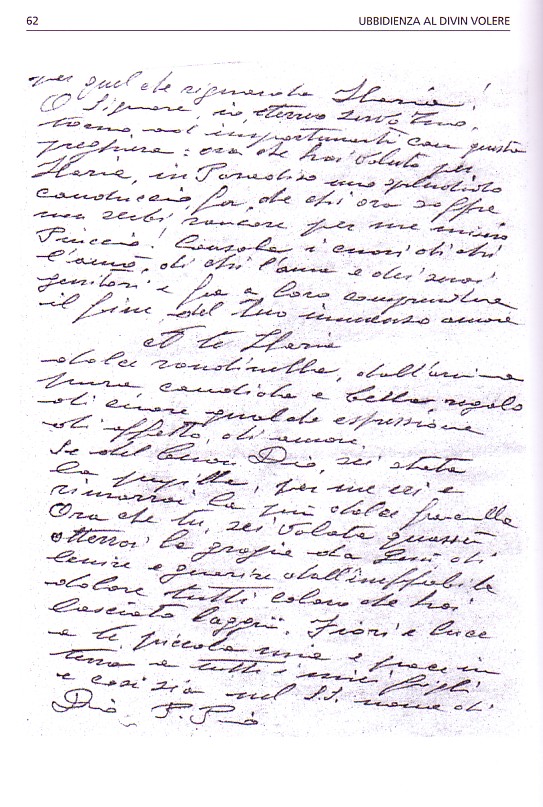 62
UBBIDIENZA AL DIVIN VOLERE
per quel che riguarda Ilaria!
O Signore, io, eterno Tuo,
torno ad importunarti con questa
preghiera: ora che hai voluto per
Ilaria, in Paradiso uno splendido
fa, che chi ora soffre
non serbi rancore per me misero
! Consola i cuori di chi
l'amò, di chi l'ama e dei suoi
genitori e fa a loro comprendere
il fine del Tuo immenso amore
A te Ilaria
dolce rondinella, dall'anima
pura candida e bella, regalo
di cuore qualche espressione
di affetto, di amore.
Se del buon Dio, sei stata
la pupilla, per me sei e
rimarrai la più dolce
Ora che tu, sei volata quassù
otterrai le grazie da Gesù di
lenire e guarire dall'ineffabile
dolore tutti coloro che hai
lasciato laggiù. Fiori e luce
a te piccola mia e pace in
terra a tutti i miei figli
e così sia nel S.S. nome di
Dio P. Pio